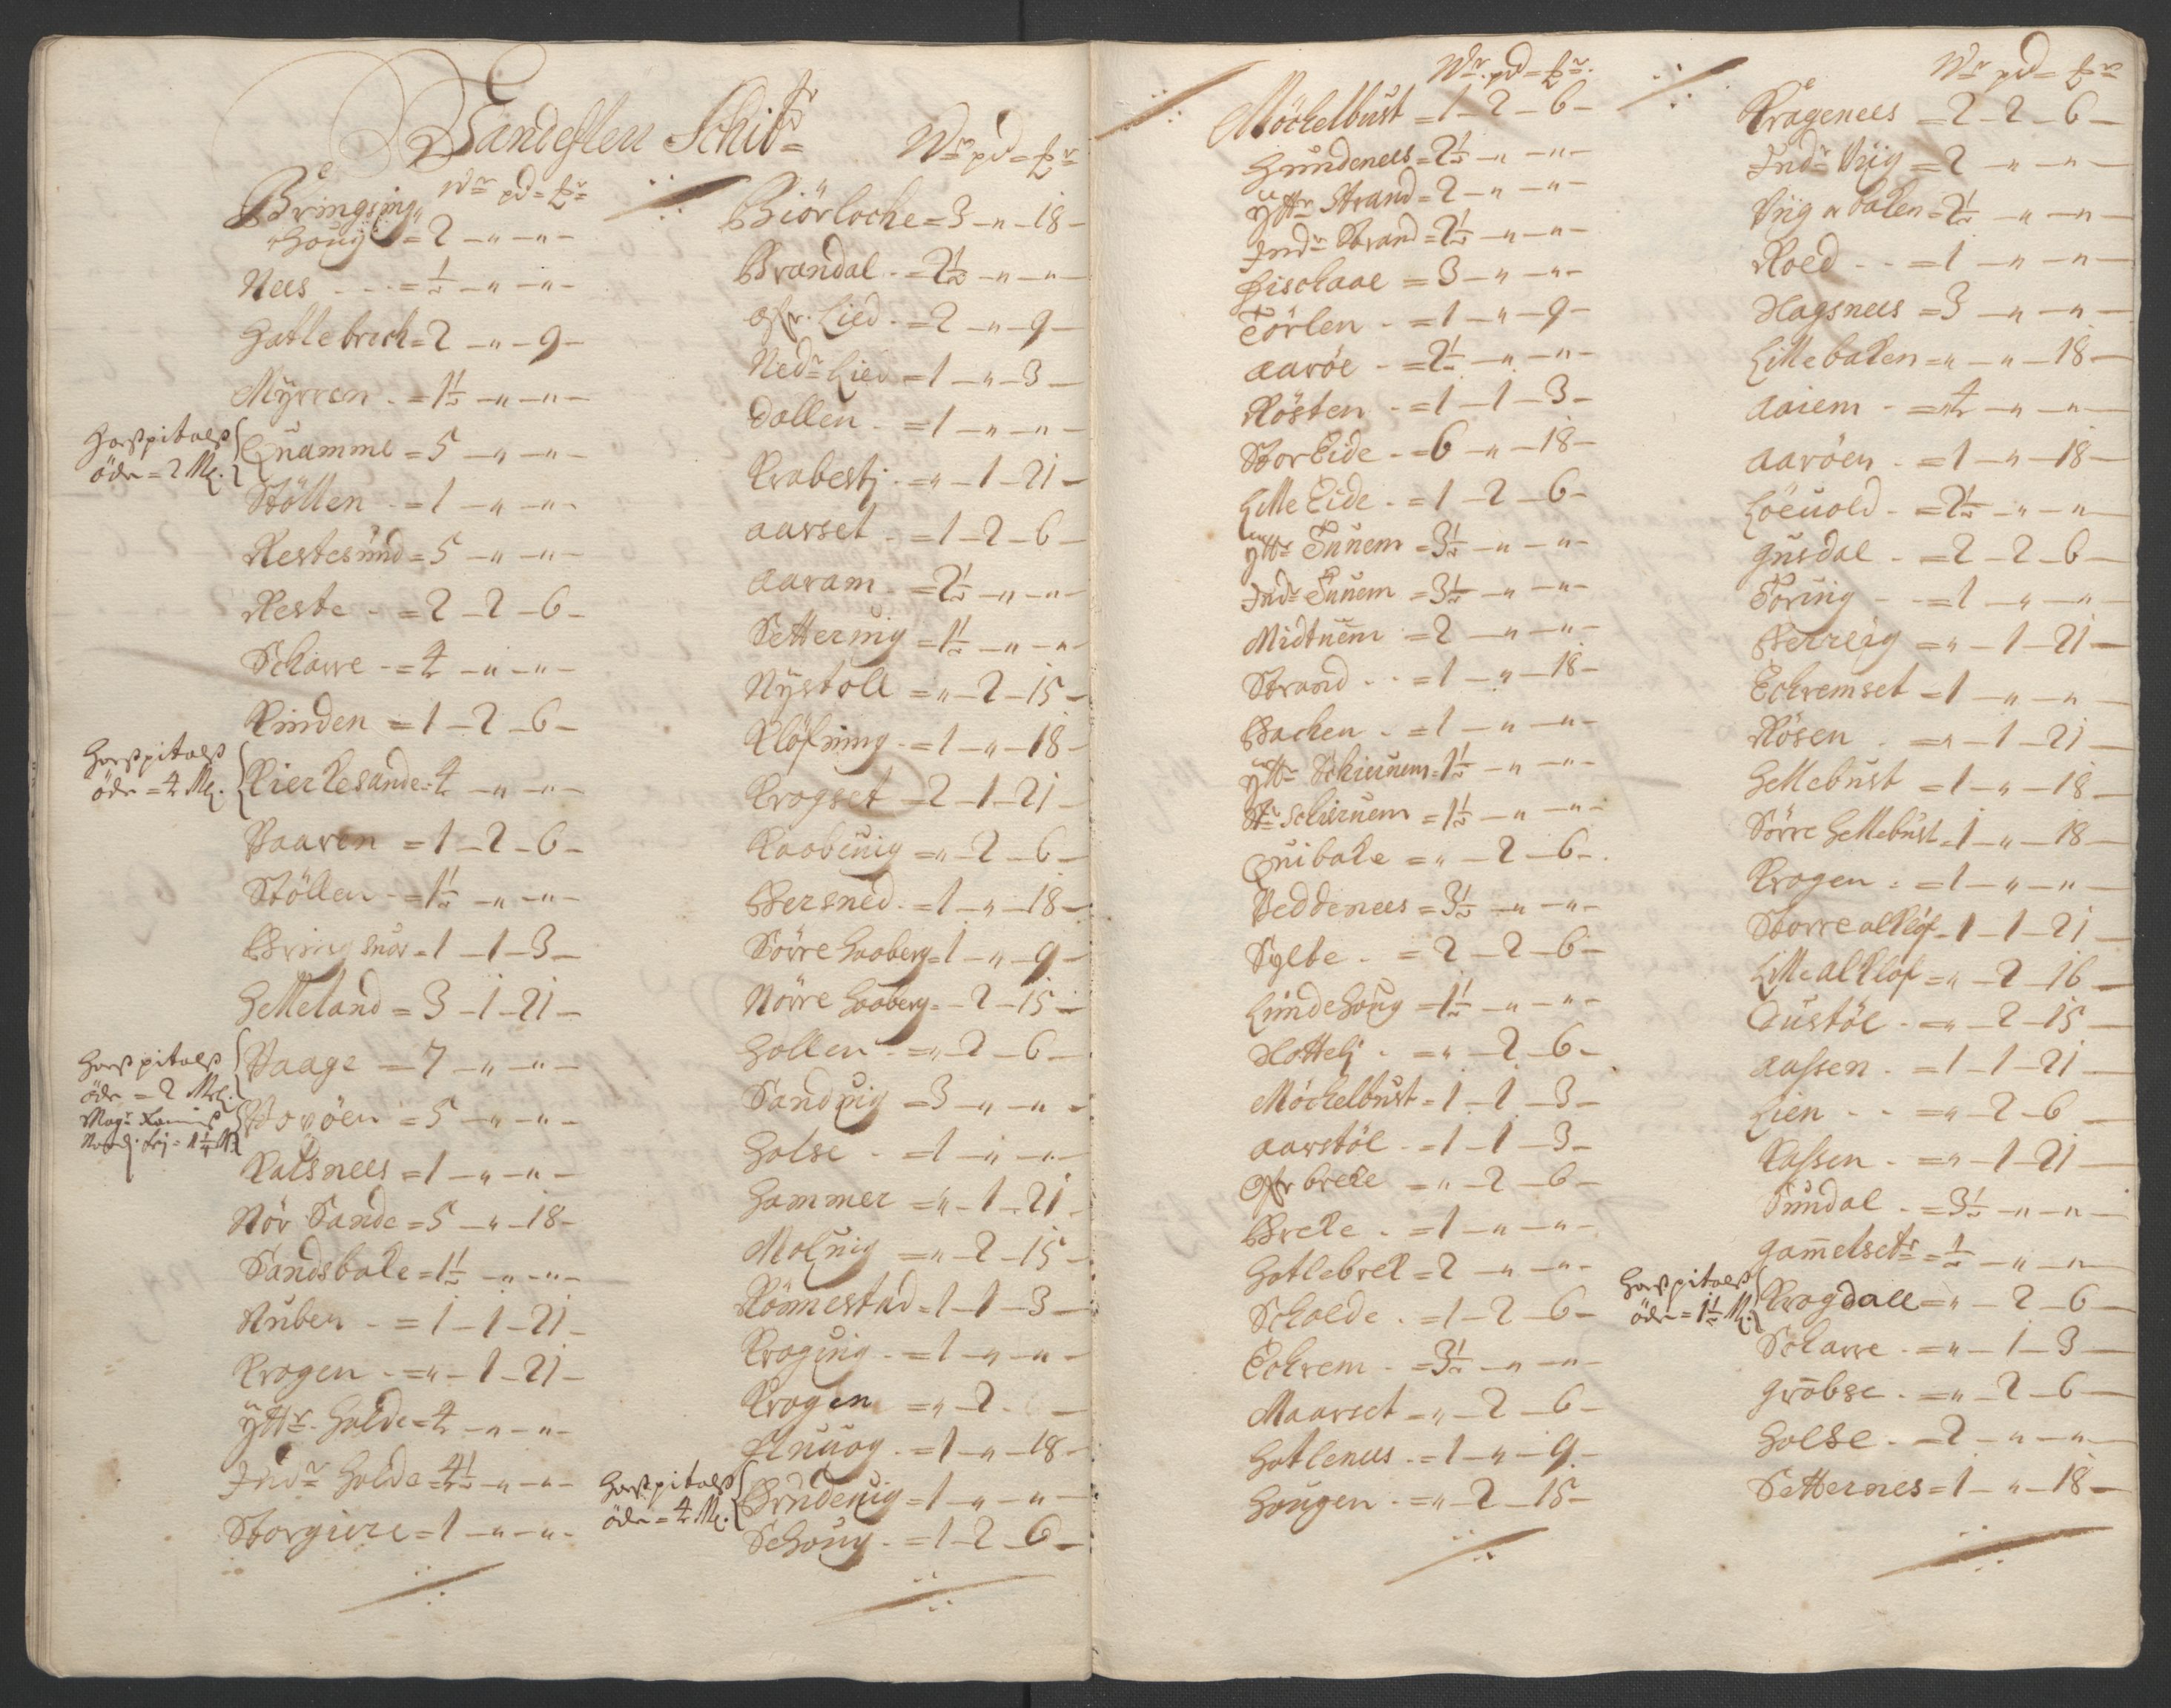 Sandeslen Schibr
Wr pd = £r
Bringsing
houg = 2 - " - " -
Nees - - - = ½ - " - " -
Hatlebrech = 2 - " - 9 -
Myrren - = 1½ - " - " -
Hospitals
öde = 2 Ml.
Quamme = 5 - " - " -
Stöllen - = 1 - " - " -
Restesund = 5 - " - " -
Reste - = 2 - 2 - 6 -
Schaire - = 4 - " - " -
Rinden = 1 - 2 - 6 -
Hospitals
öde = 4 Ml.
Kierkesande = 4 - " - " -
Vaaren = 1 - 2 - 6 -
Stöllen - = 1½ - " - " -
Bringsuor = 1 - 1 - 3 -
Helleland = 3 - 1 - 21 -
Hospitals
öde = 2 Ml.
Vaage = 7 - " - " -
Voxöen = 5 - " - " -
Kalsnees = 1 - " - " -
Nör Sande = 5 - " - 18 -
Sandsbake = 1½ - " - " -
Nuben - = 1 - 1 - 21 -
Krogen - = " - 1 - 21 -
yttr Holde = 4 - " - " -
Indr Holde = 4½ - " - " -
Storgiere = 1 - " - " -
Wr pd = £r
Biörloche = 3 - " - 18 -
Brandal - = 2½ - " - " -
Ofr. Lied - = 2 - " - 9 -
Nedr Lied = 1 - " - 3 -
Dallen - = 1 - " - " -
Krabestj - = " - 1 - 21 -
Aarset - = 1 - 2 - 6 -
Aaram - = 2½ - " - " -
Setteruig = 1½ - " - " -
Nystoll = " - 2 - 15 -
Klöfning - = 1 - " - 18 -
Krogset = 2 - 1 - 21 -
Kaabeuig = " - 2 - 6 -
Bersned - = 1 - " - 18 -
Sörre Haaberg = 1 - " - 9 -
Nörre Haaberg = - 2 - 15 -
Hallen - = " - 2 - 6 -
Sanduig = 3 - " - " -
Halse - = 1 - " - " -
Hammer = " - 1 - 21 -
Moluig = " - 2 - 15 -
Rönnestad = 1 - 1 - 3 -
Kroguig - = 1 - " - " -
Krogen = " - 2 -
Almuog - = 1 - " - 18 -
Hospitals
öde = 4 Ml.
Brudeuig = 1 - " - " -
Sehoug - = 1 - 2 - 6 -
Wr pd = £r
Möckelbust = 1 - 2 - 6 -
Hundenees = 2½ - " - " -
yttr Strand = 2 - " - " -
Indr Strand = 2½ - " - " -
Fischaae = 3 - " - " -
Törlen - = 1 - " - 9 -
Aaröe - = 2½ - " - " -
Rösten - = 1 - 1 - 3 -
Stor Eide - = 6 - " - 18 -
Lille Eide - = 1 - 2 - 6 -
yttr Tunem = 3½ - " - " -
Indr Tunem = 3½ - " - " -
Midtuem = 2 - " - " -
Strand - - = 1 - " - 18 -
Bachen - = 1 - " - " -
yttr Schieruem = 1½ - " - " -
Str Schieruem = 1½ - " - " -
Quibake = " - 2 - 6 -
Veddenees = 3½ - " - " -
Sylte - = 2 - 2 - 6 -
Lindehoug = 1½ - " - " -
Hottelj - = " - 2 - 6 -
Möckelbust = 1 - 1 - 3 -
Aarstöl - = 1 - 1 - 3 -
Ofr breke = " - 2 - 6 -
Breke - = 1 - " - " -
Hatlebrek = 2 - " - " -
Scholde - = 1 - 2 - 6 -
Eckrem - = 3½ - " - " -
Maarset = " - 2 - 6 -
Hatlenus - = 1 - " - 9 -
Hougen - = " - 2 - 15 -
Wr pd = £r
Kragenees = 2 - 2 - 6 -
Indr Vig = 2 - " - " -
Roed - - = 1 - " - " -
Hagsnees = 3 - " - " -
Lillebaken = " - " - 18 -
Aaiem - = 4 - " - " -
Aaröen - = 1 - " - 18 -
Löeuold - = 2½ - " - " -
Gusdal - = 2 - 2 - 6 -
Töring - - = 1 - " - " -
Berreig = " - 1 - 21 -
Eckremset = 1 - " - " -
Rösen - = " - 1 - 21 -
Hellebust = 1 - " - 18 -
Sörre Hellebust = 1 - " - 18 -
Krogen = 1 - " - " -
Storre alklöf = 1 - 1 - 21 -
Lille alklöf = " - 2 - 16 -
Dustöl - = " - 2 - 15 -
Aassen - = 1 - 1 - 21 -
Lien - - = " - 2 - 6 -
Kassen - = " - 1 - 21 -
Sundal - = 3½ - " - " -
Gam̅elsetr = ½ - " - " -
Hospitals
öde = 1½ Ml.
Krogdall = " - 2 - 6 -
Scharre - = " - 1 - 3 -
Gröbse - = " - 2 - 6 -
Holse - = 2 - " - " -
Setternes = 1 - " - 18 -